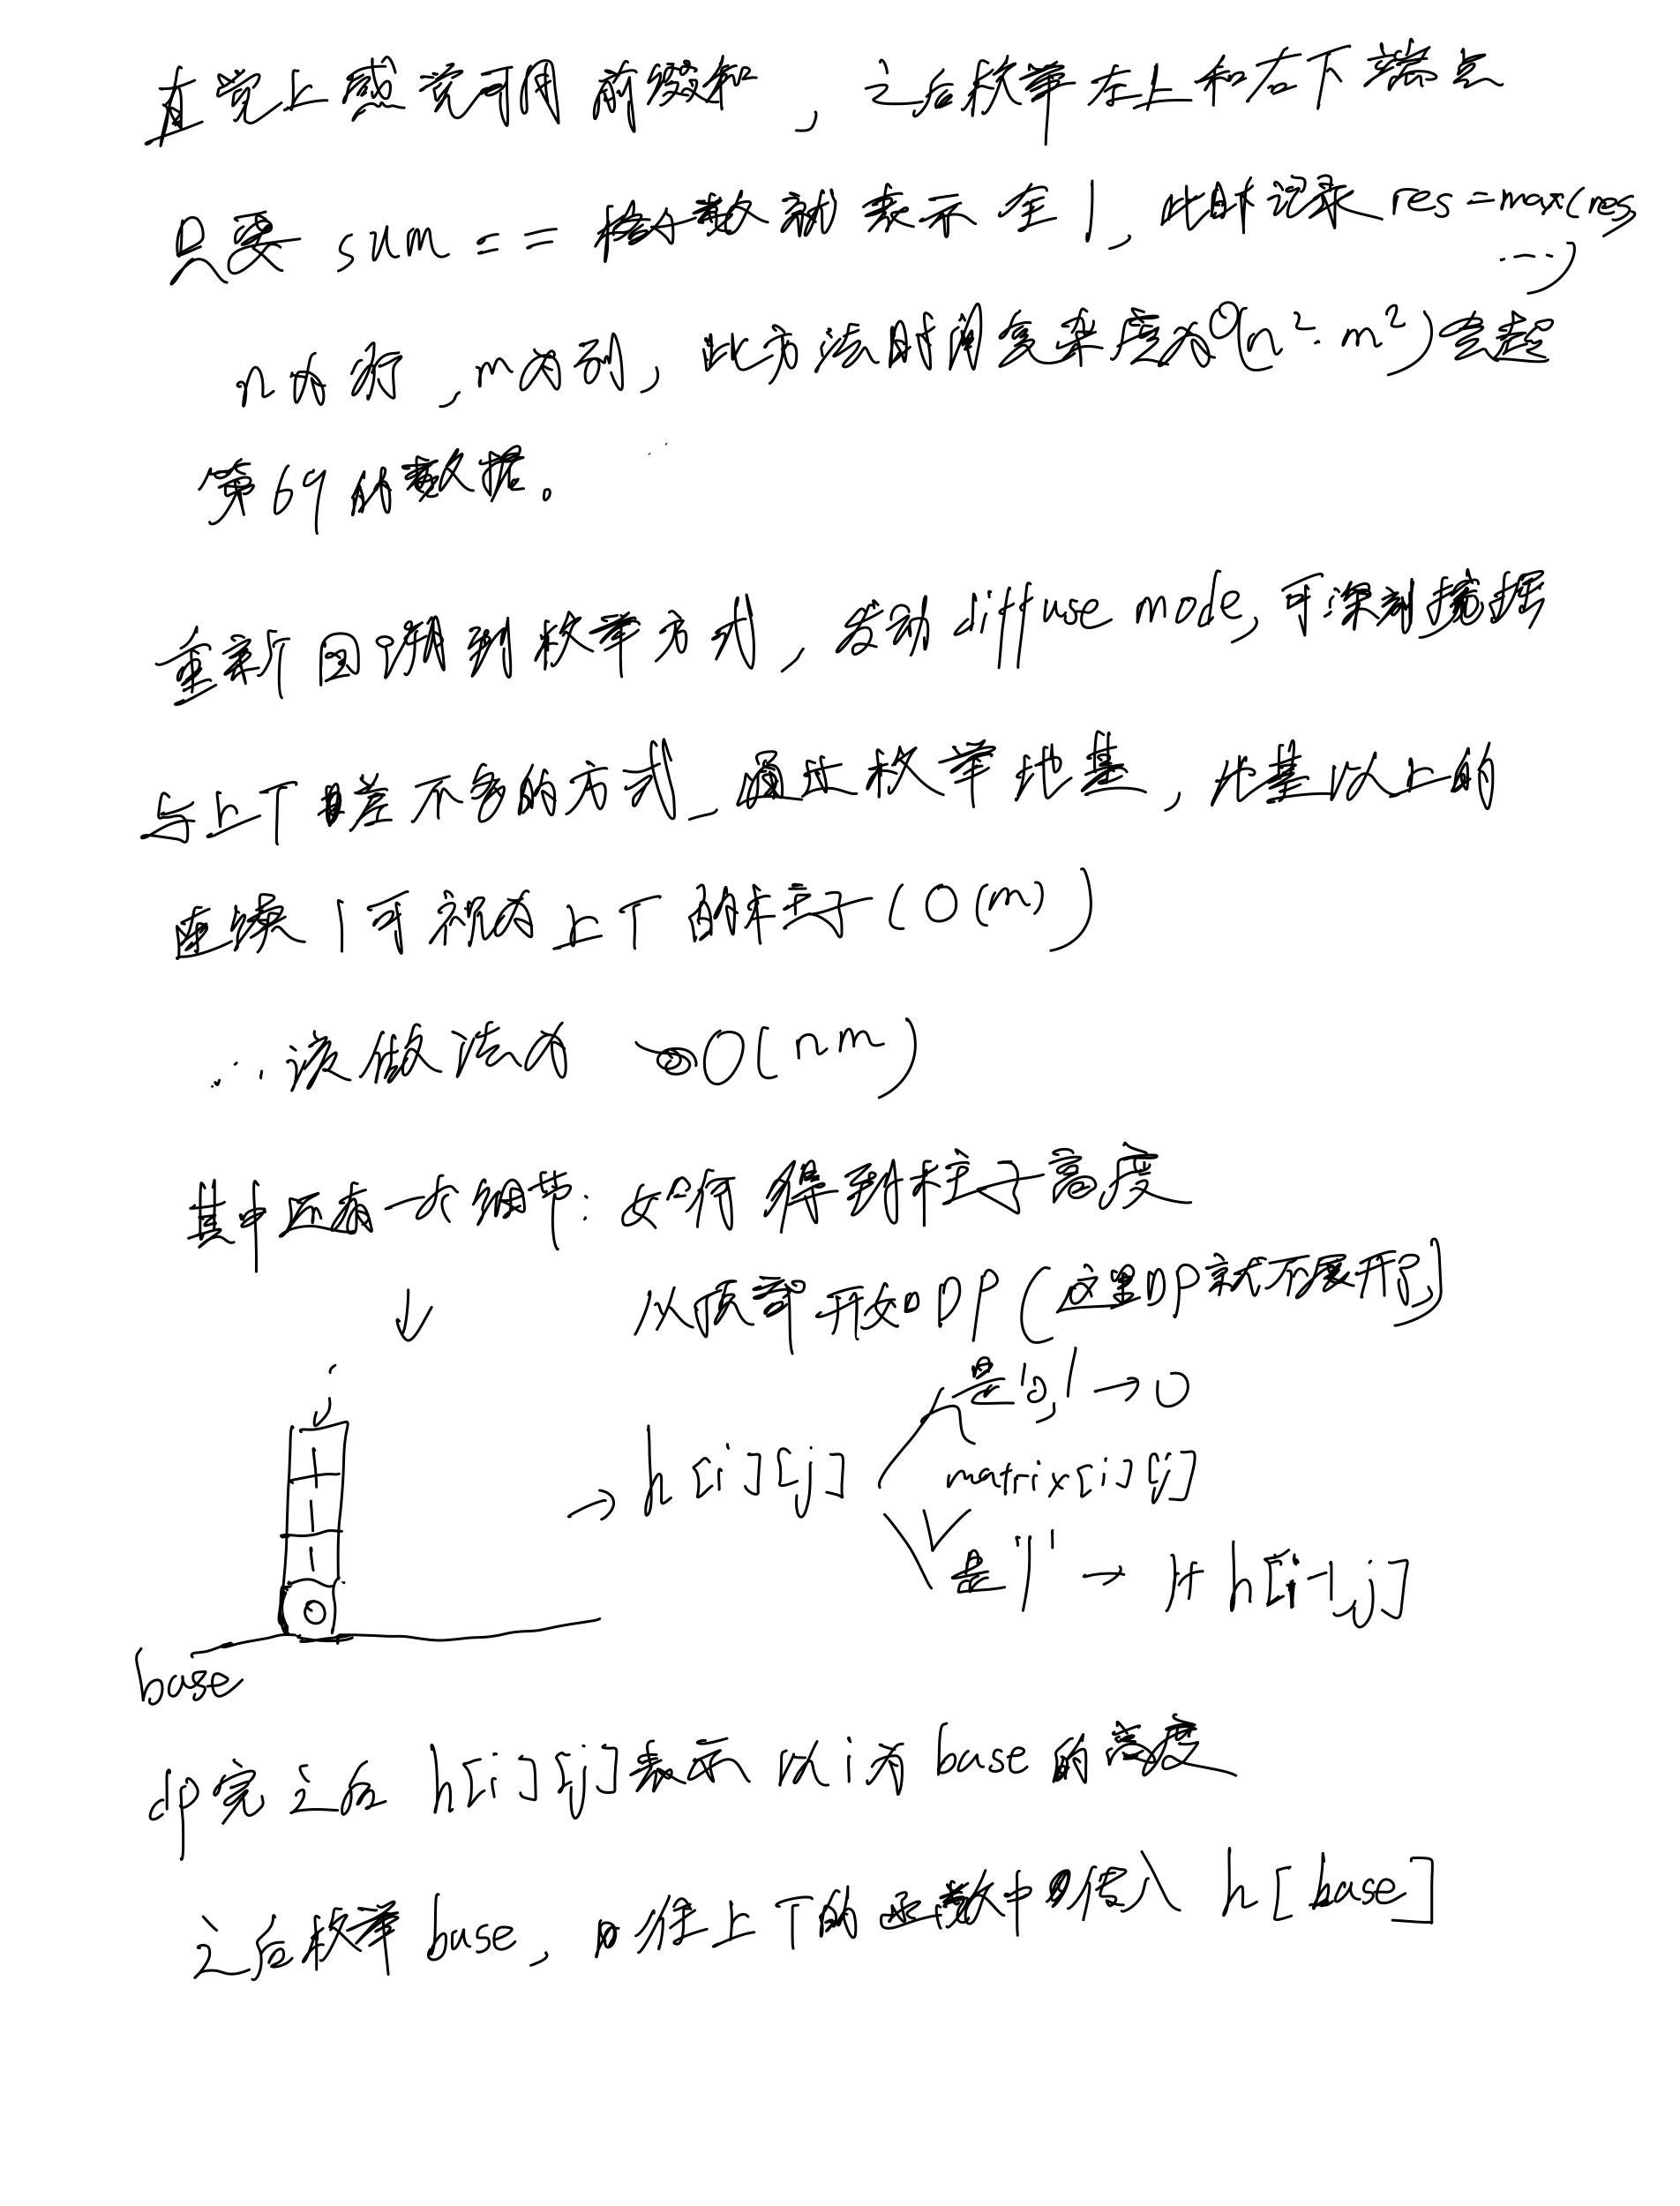 直觉上感觉可用前缀和，之后枚举左上和右下端点
只要 sum == 格子数就表示全1，此时记录 res = max(res
...)
n为行，m为列，此方法时间复杂度为O(n²·m²)会超
第69的数据。
重新回溯到枚举方式，发动diffuse mode，可深刻挖掘
与上T差不多的方式，通过枚举地基，地基以上的
连续1可视为上T的柱子(O(m))
∴该做法为 O(nm)
其中还有一个细节：如何得到柱子高度
↓ 从顶部开始DP(这里DP就不展开了)
是'0' → 0
h[i][j] matrix[i][j]
是'1' → 1+h[i-1,j]
base
dp完之后 h[i][j]表示以i为base的高度
之后枚举base，往上T的函数中传入 h[base]